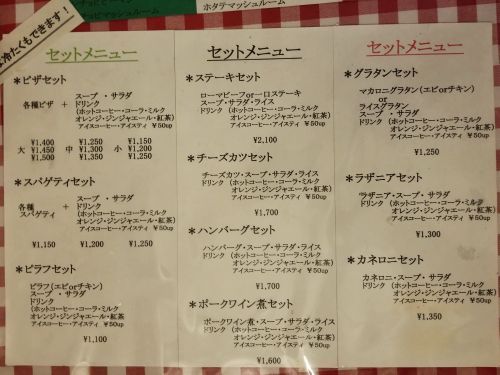 ホタテマッシュルーム
冷たくもできます！
セットメニュー
＊ピザセット
各種ピザ ＋ スープ・サラダ
ドリンク
(ホットコーヒー・コーラ・ミルク
オレンジ・ジンジャエール・紅茶)
アイスコーヒー・アイスティ ￥50up
大 ￥1,400 ￥1,450 ￥1,500
中 ￥1,250 ￥1,300 ￥1,350
小 ￥1,150 ￥1,200 ￥1,250
＊スパゲティセット
各種 スパゲティ ＋ スープ・サラダ
ドリンク
(ホットコーヒー・コーラ・ミルク
オレンジ・ジンジャエール・紅茶)
アイスコーヒー・アイスティ ￥50up
￥1,150 ￥1,200 ￥1,250
＊ピラフセット
ピラフ(エビorチキン)
スープ・サラダ
ドリンク
(ホットコーヒー・コーラ・ミルク
オレンジ・ジンジャエール・紅茶)
アイスコーヒー・アイスティ ￥50up
￥1,100
セットメニュー
＊ステーキセット
ローマビーフor一口ステーキ
スープ・サラダ・ライス
ドリンク (ホットコーヒー・コーラ・ミルク
オレンジ・ジンジャエール・紅茶)
アイスコーヒー・アイスティ ￥50up
￥2,100
＊チーズカツセット
チーズカツ・スープ・サラダ・ライス
ドリンク (ホットコーヒー・コーラ・ミルク
オレンジ・ジンジャエール・紅茶)
アイスコーヒー・アイスティ ￥50up
￥1,700
＊ハンバーグセット
ハンバーグ・スープ・サラダ・ライス
ドリンク (ホットコーヒー・コーラ・ミルク
オレンジ・ジンジャエール・紅茶)
アイスコーヒー・アイスティ ￥50up
￥1,700
＊ポークワイン煮セット
ポークワイン煮・スープ・サラダ・ライス
ドリンク (ホットコーヒー・コーラ・ミルク
オレンジ・ジンジャエール・紅茶)
アイスコーヒー・アイスティ ￥50up
￥1,600
セットメニュー
＊グラタンセット
マカロニグラタン(エビorチキン)
or
ライスグラタン
スープ・サラダ
ドリンク (ホットコーヒー・コーラ・ミルク
オレンジ・ジンジャエール・紅茶)
アイスコーヒー・アイスティ ￥50up
￥1,250
＊ラザニアセット
ラザニア・スープ・サラダ
ドリンク (ホットコーヒー・コーラ・ミルク
オレンジ・ジンジャエール・紅茶)
アイスコーヒー・アイスティ ￥50up
￥1,300
＊カネロニセット
カネロニ・スープ・サラダ
ドリンク (ホットコーヒー・コーラ・ミルク
オレンジ・ジンジャエール・紅茶)
アイスコーヒー・アイスティ ￥50up
￥1,350